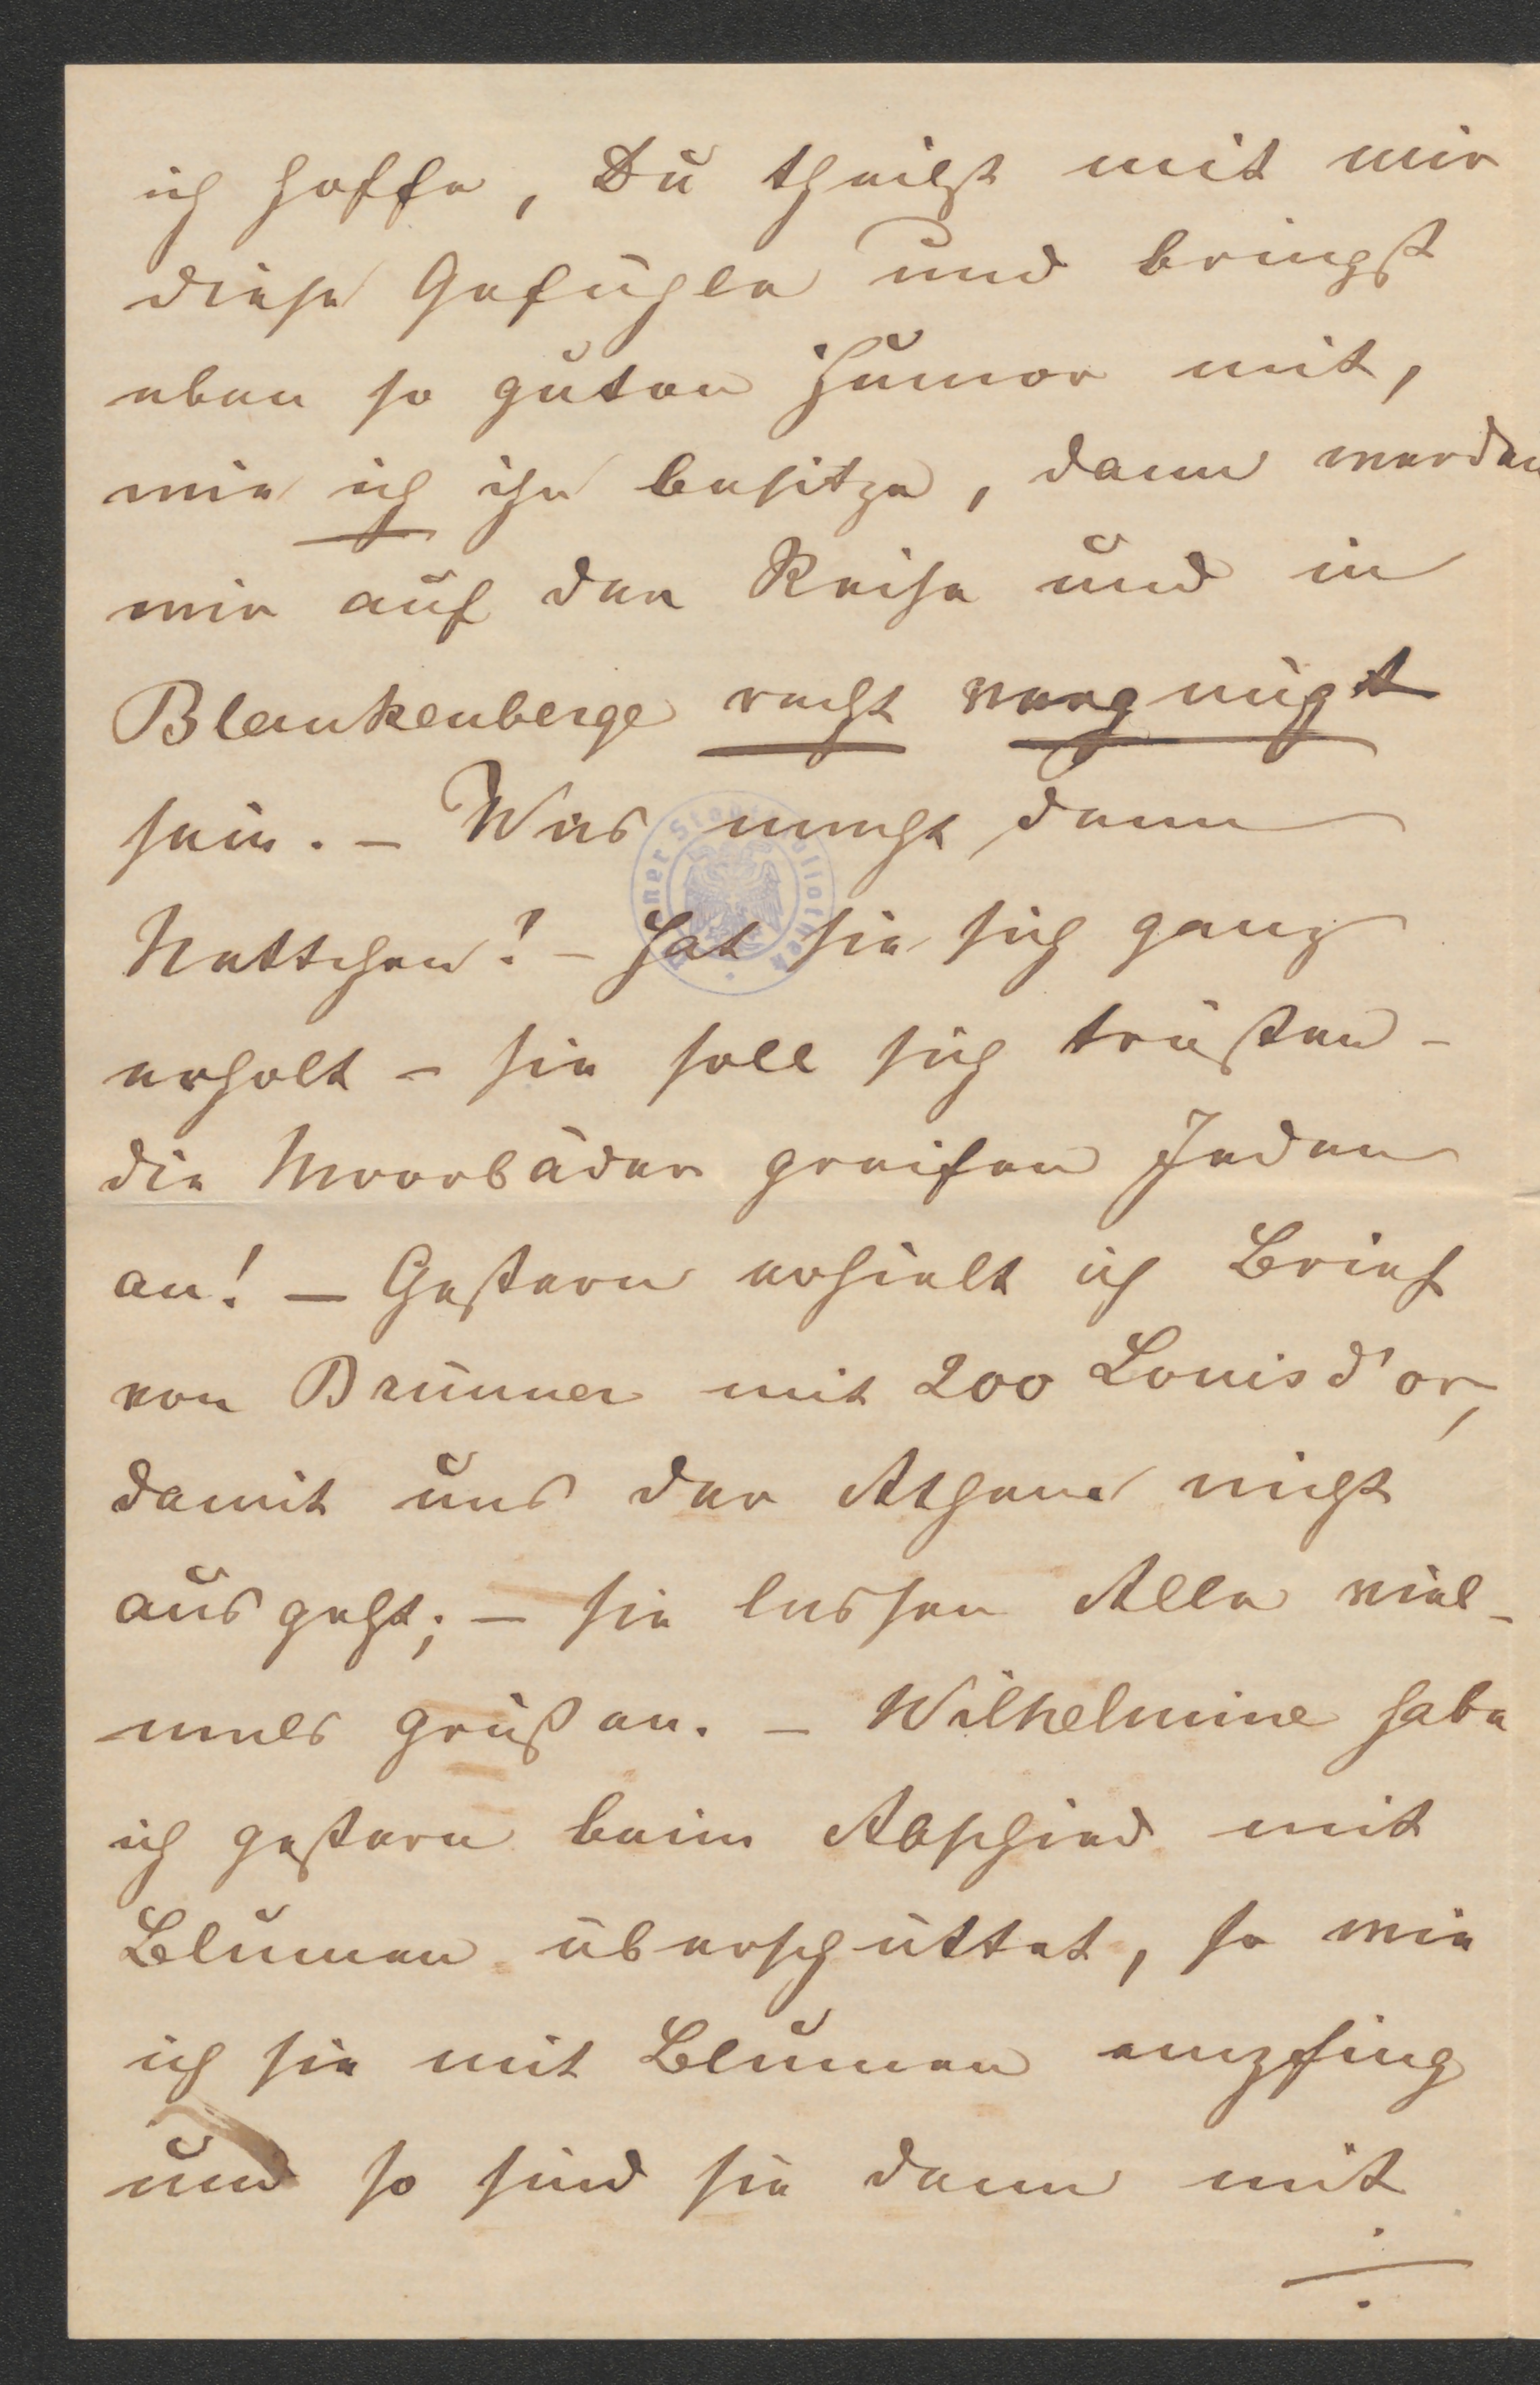 ich hoffe, Du theilst mit mir
diese Gefühle und bringst
eben so guten Humor mit,
wie ich ihn besitze, dann werden
wir auf der Reise und in
Blankenberge recht vergnügt
sein. – Was macht denn
Nettchen? – Hat sie sich ganz
erholt – sie soll sich trösten –
die Moorbäder greifen Jeden
an! – Gestern erhielt ich Brief
von Brunner mit 200 Louisd'or,
damit uns der Athem nicht
ausgeht; – sie lassen Alle viel-
mals grüßen. – Wilhelmine habe
ich gestern beim Abschied mit
Blumen überschüttet, so wie
ich sie mit Blumen empfing
und so sind sie denn mit